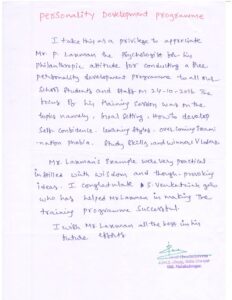 Personality Development programme
I take this as a privilege to appreciate
Mr. P. Laxman the Psychologist for his
philanthropic attitude for conducting a free
personality development programme to all our
School Students and Staff on 24-10-2016 The
focus of his training session was on the
topics namely, Goal Setting, How to develop
Self Confidence. learning styles. over coming Exami-
nation Phobia. Study Skills, and Winners V Losers.
Mr. Laxman's Example were very practical
instilled with wisdom and though-provoking
ideas. I Congratulate S. Venkataiah
who has helped Mr Laxman in making the
training programme Successful.
I wish Mr. Laxman all the best in his
future efforts